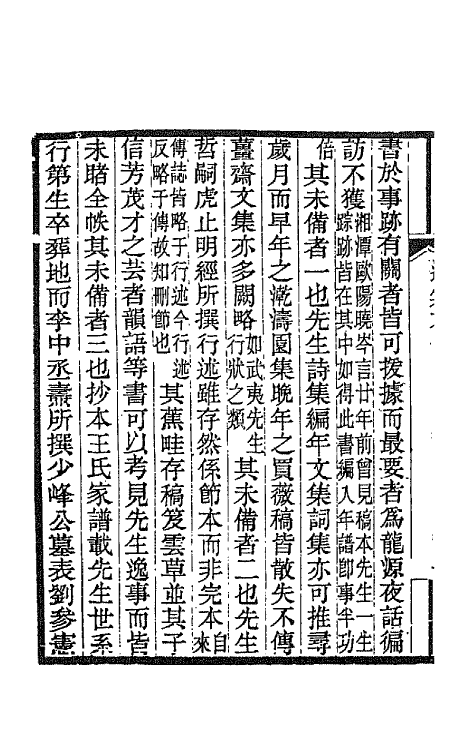 書於事跡有關者皆可援據而最要者爲龍源夜話徧
訪不獲湘潭歐陽曉岑言廿年前曾見稿本先生一生踪跡皆在其中如得此書編入年譜卽事半功
倍其未備者一也先生詩集編年文集詞集亦可推尋
歲月而早年之漧濤園集晚年之買薇稿皆散失不傳
薑齋文集亦多闕略如武夷先生行狀之類其未備者二也先生
哲嗣虎止明經所撰行述雖存然係節本而非完本自來
傳誌皆略于行述今行述反略于傳故知刪節也其蕉畦存稿笈雲草並其子
信芳茂才之芸者韻語等書可以考見先生逸事而皆
未睹全帙其未備者三也抄本王氏家譜載先生世系
行第生卒葬地而李中丞燾所撰少峰公墓表劉參憲